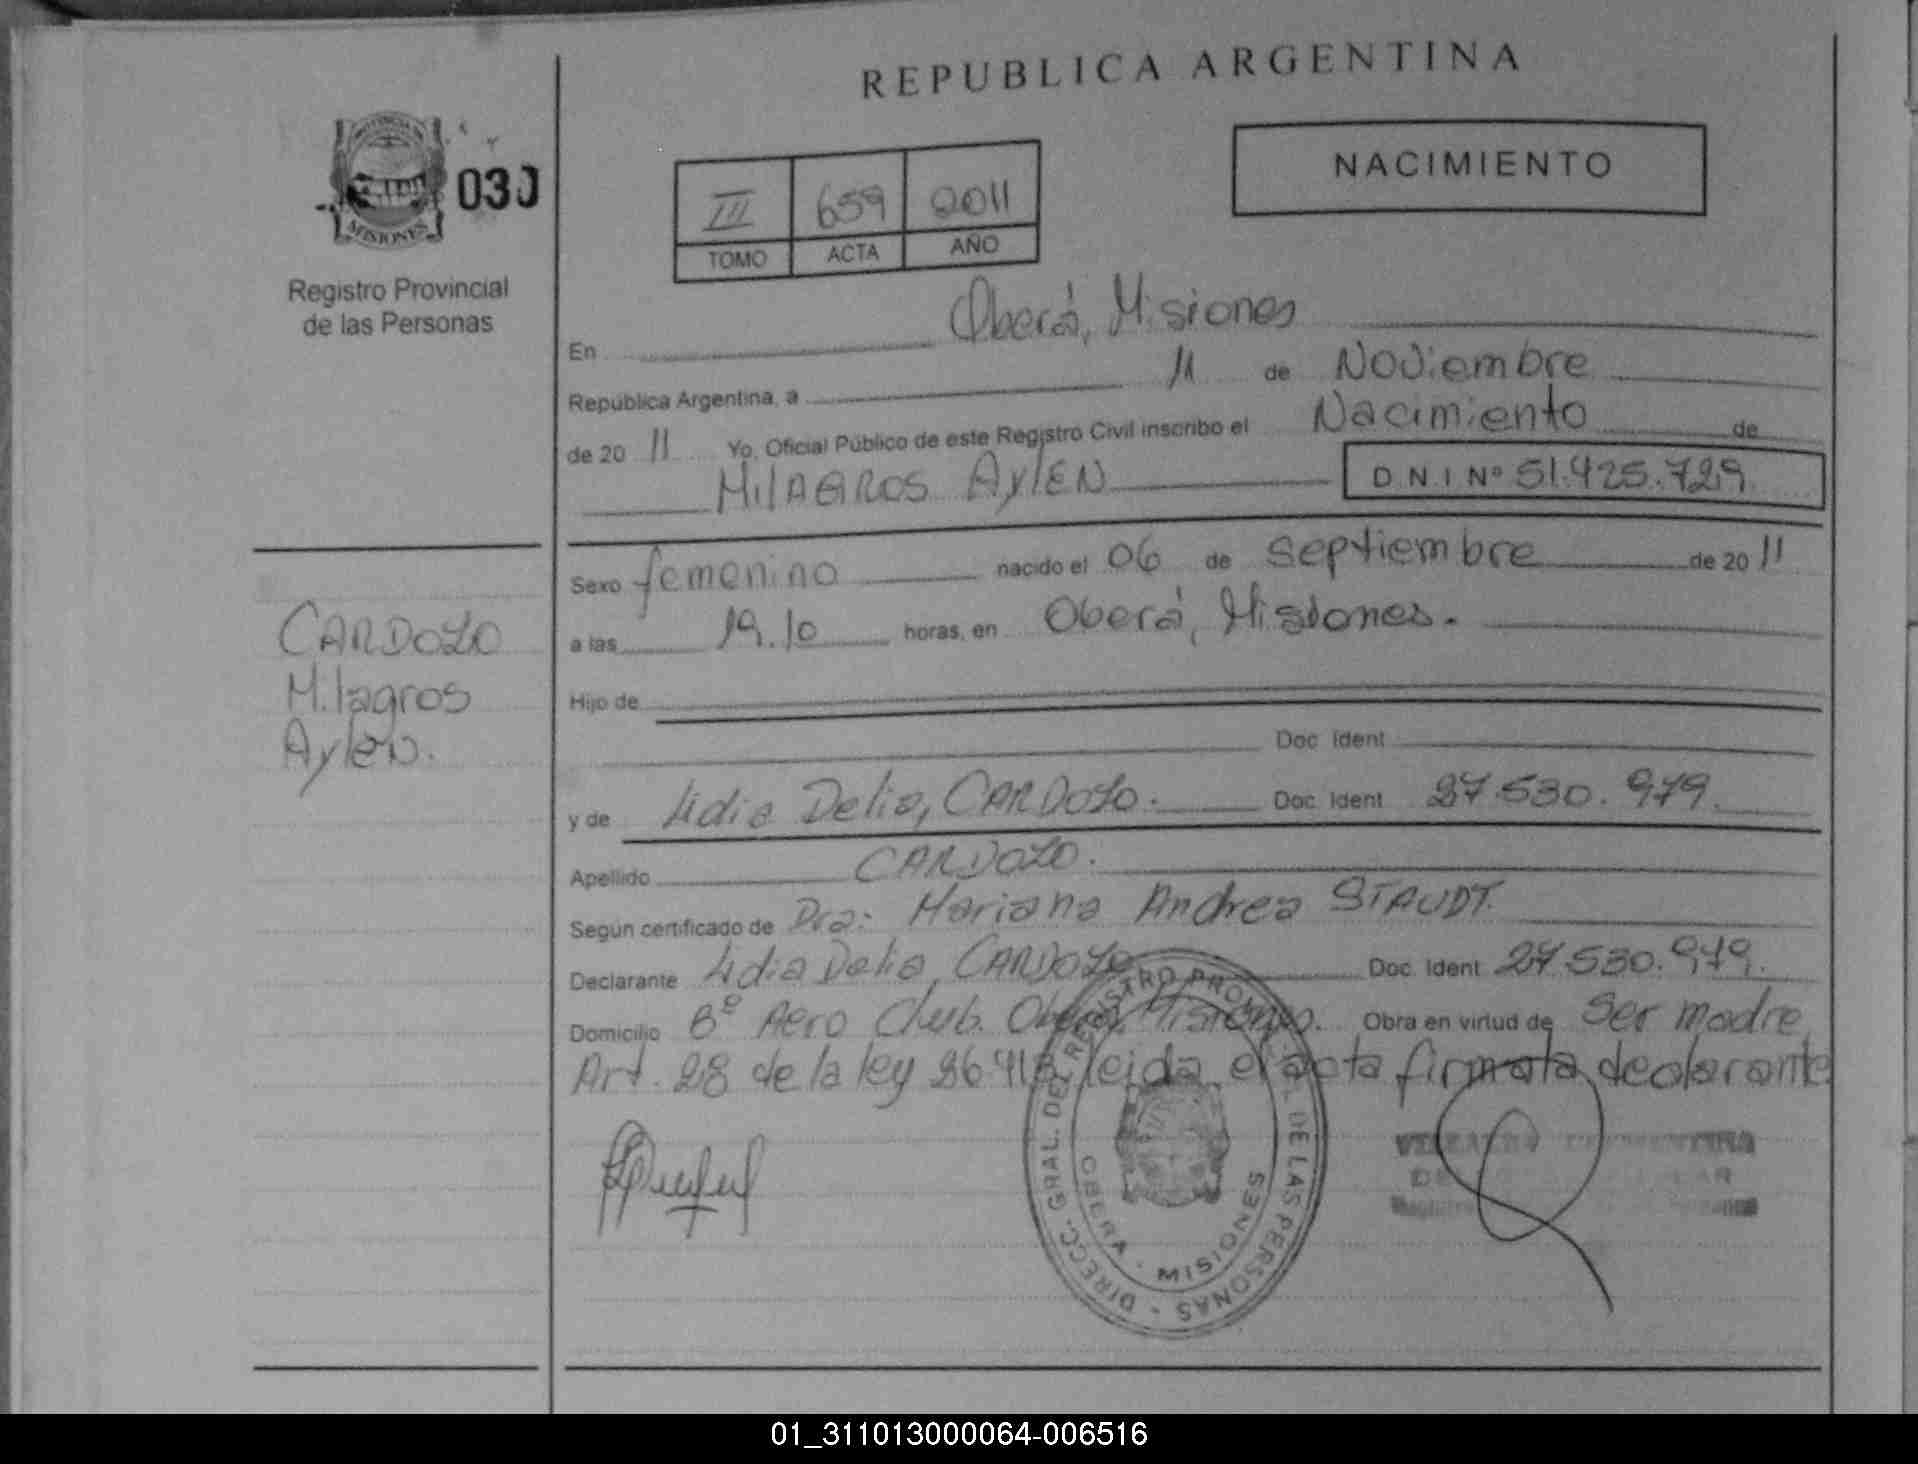 REPUBLICA ARGENTINA
NACIMIENTO
PROVINCIA DE
MISIONES
030
Registro Provincial
de las Personas
III 659 2011
TOMO ACTA AÑO
En Oberá, Misiones
República Argentina, a 11 de Noviembre
de 20 11 Yo, Oficial Público de este Registro Civil inscribo el Nacimiento de
MIlAGROS AylEN D.N.I Nº 51.425.729
Sexo femenino nacido el 06 de Septiembre de 20 11
a las 19.10 horas, en Oberá, Misiones.
Hijo de
Doc. Ident
y de Lidia Delia, CARDOZO. Doc. Ident 27.530.979.
Apellido CARDOZO.
Según certificado de Dra: Mariana Andrea STAUDT.
Declarante Lidia Delia, CARDOZO Doc. Ident 27.530.979.
Domicilio Bº Aero Club. Oberá, Misiones. Obra en virtud de Ser madre
Art. 28 de la ley 26413 leida el acta firmata declarante
CARDOZO
Milagros
Aylén.
DIRECC. GRAL. DEL REGISTRO PROVINCIAL DE LAS PERSONAS
OBERA - MISIONES
01_311013000064-006516